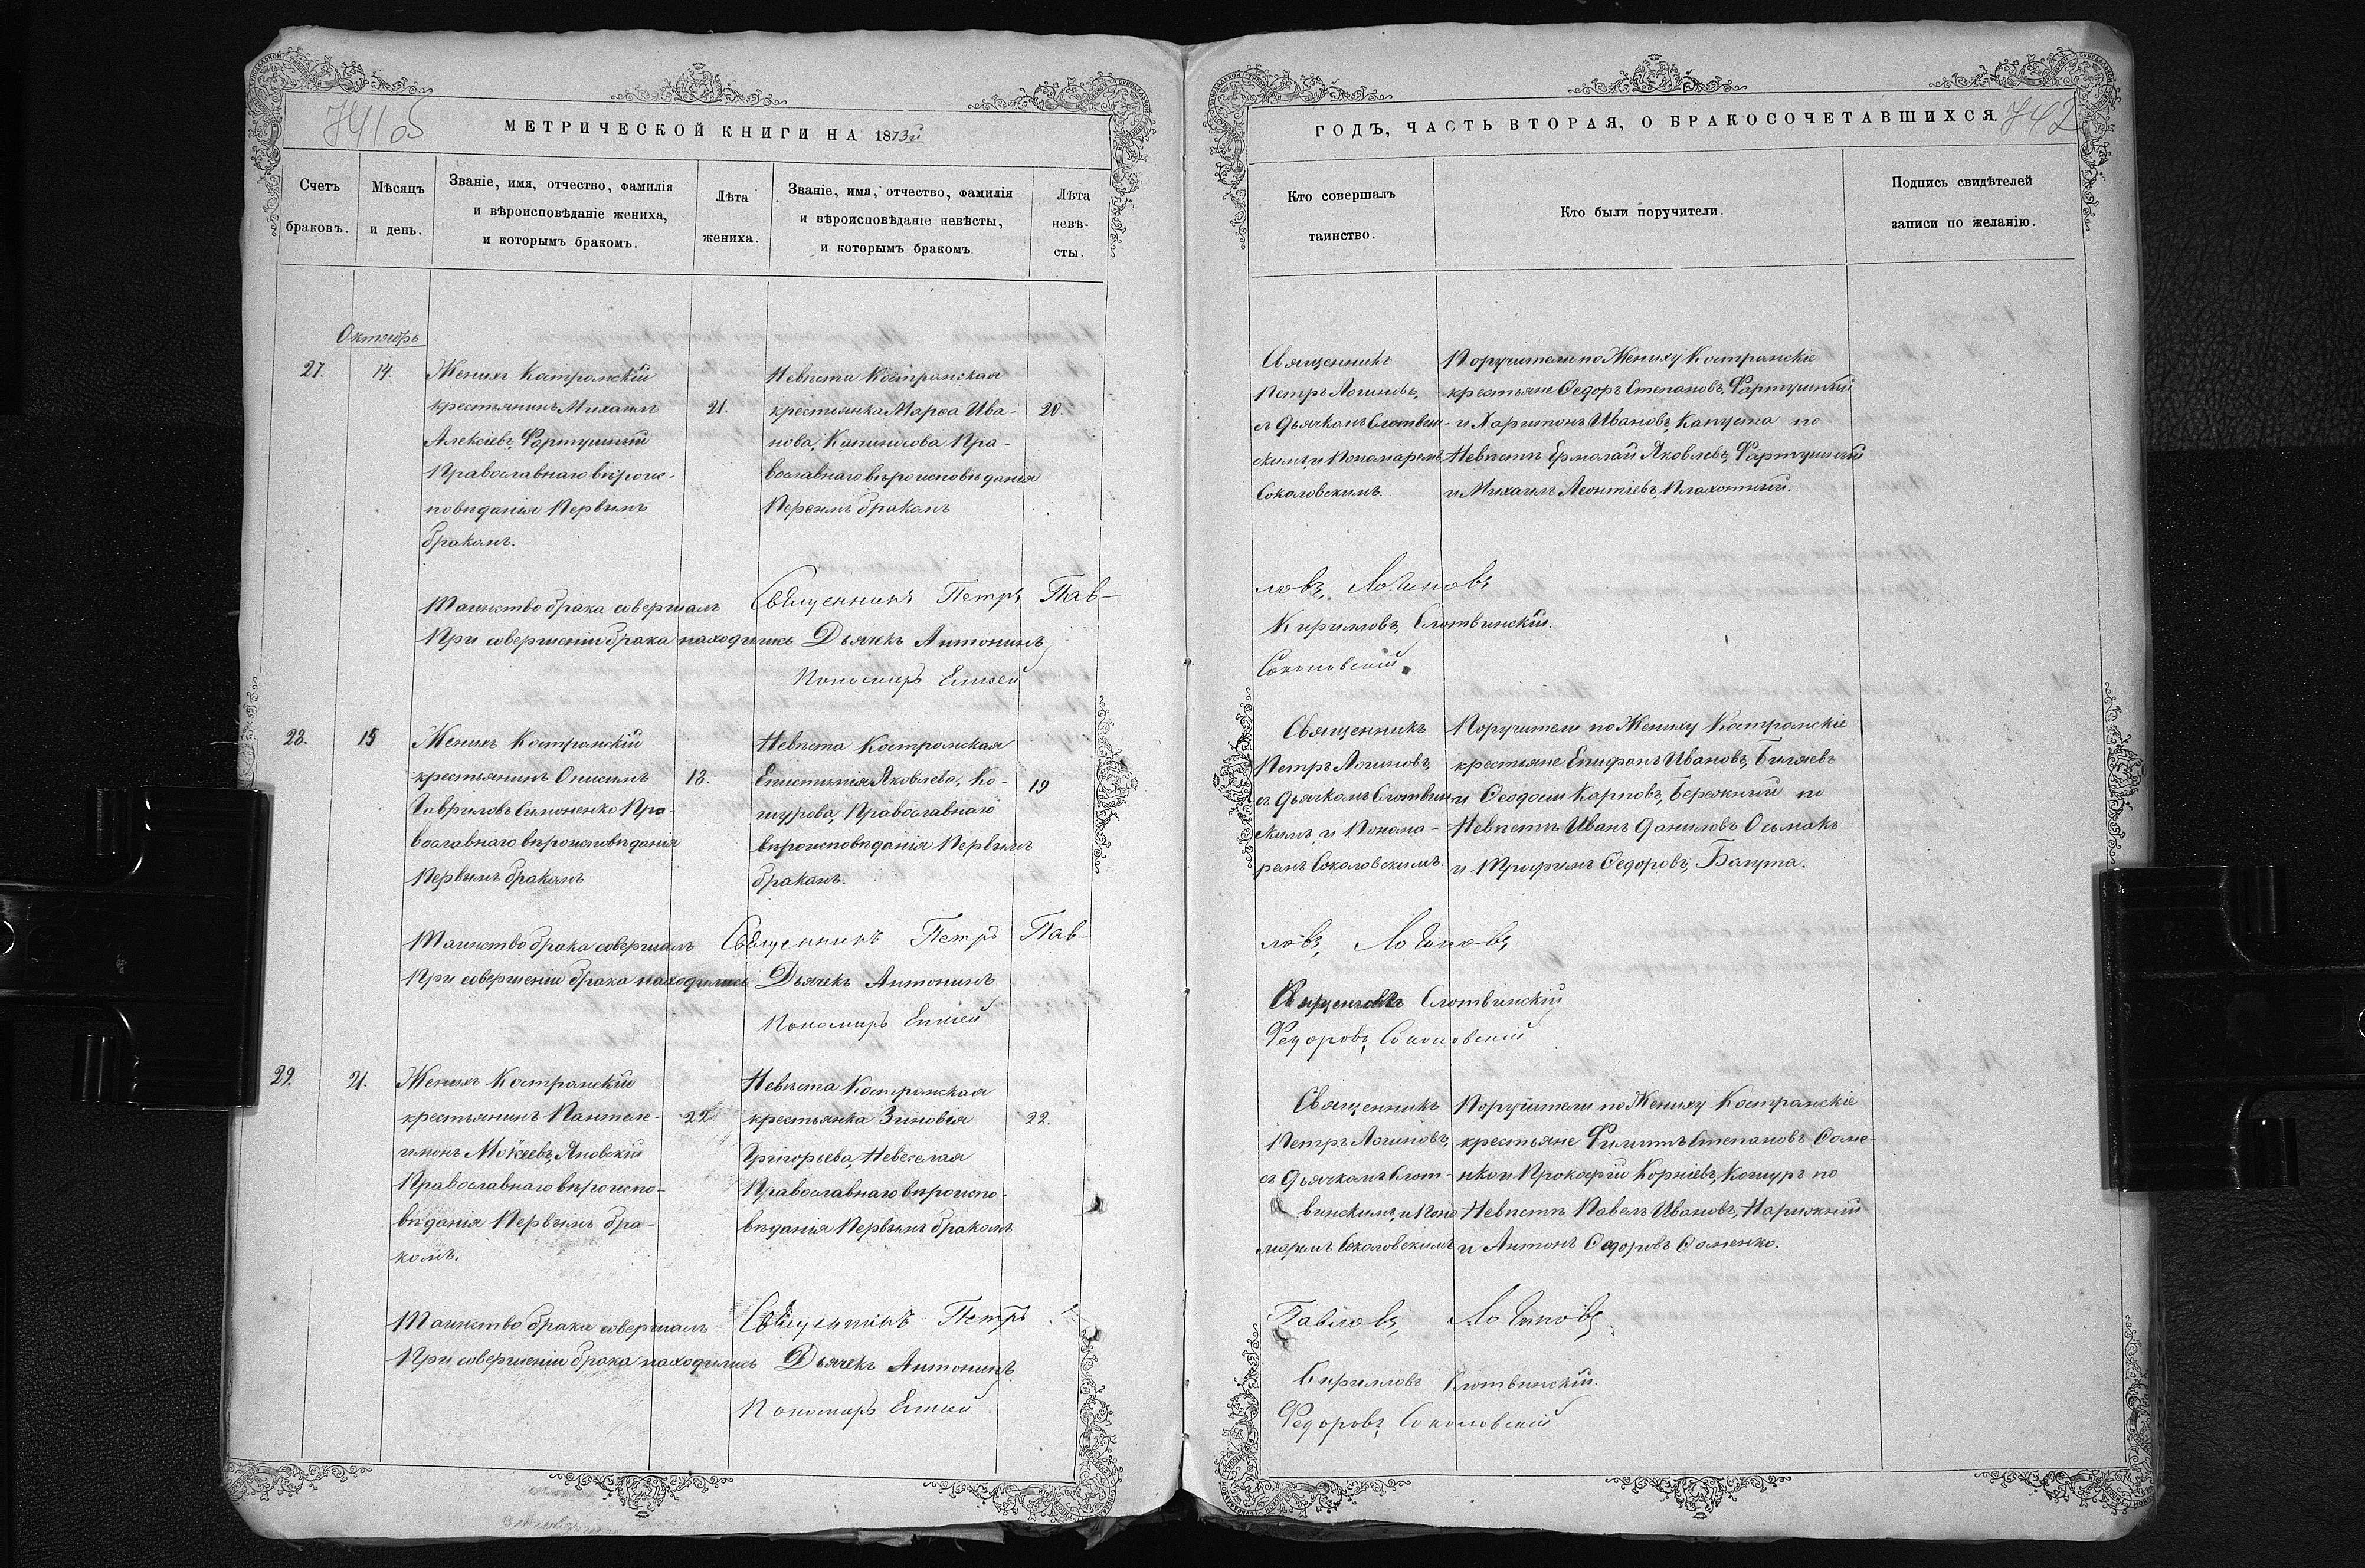 741об
МЕТРИЧЕСКОЙ КНИГИ НА 1873й
Счетъ браковъ.
Мѣсяцъ и день.
Званіе, имя, отчество, фамилія
и вѣроисповѣданіе жениха,
и которымъ бракомъ.
Лѣта жениха.
Званіе, имя, отчество, фамилія
и вѣроисповѣданіе невѣсты,
и которымъ бракомъ
Лѣта невѣ-
сты.
Октябрь
27.
14.
Женихъ Костромскій
крестьянинъ Михаилъ
Алексіевъ, Фартушный
Православнаго вѣроис-
повѣданія Первымъ
бракомъ.
21.
Невѣста Костромская
крестьянка Марѳа Ива-
нова, Капиносова Пра-
вославнаго вѣроисповѣданія
Первымъ бракомъ
20.
Таинство брака совершалъ Священникъ Петръ Пав-
При совершеніи брака находились Дьячекъ Антонинъ
Пономарь Елисей
28.
15
Женихъ Костромскій
крестьянинъ Онисимъ
Гавриловъ Симоненко Пра-
вославнаго вѣроисповѣданія
Первымъ бракомъ
18.
Невѣста Костромская
Епистимія Яковлева, Ко-
шурова, Православнаго
вѣроисповѣданія Первымъ
бракомъ.
19
Таинство брака совершалъ Священникъ Петръ Пав-
При совершеніи брака находились Дьячекъ Антонинъ
Пономарь Елисей
29.
21.
Женихъ Костромскій
крестьянинъ Пантеле-
имонъ Мокеевъ, Яновскій
Православнаго вѣроиспо-
вѣданія Первымъ бра-
комъ.
22.
Невѣста Костромская
крестьянка Зиновія
Григорьева, Невеселая
Православнаго вѣроиспо-
вѣданія Первымъ бракомъ
22.
Таинство брака совершалъ Священникъ Петръ
При совершеніи брака находились Дьячекъ Антонинъ
Пономарь Елисей
742
ГОДЪ, ЧАСТЬ ВТОРАЯ, О БРАКОСОЧЕТАВШИХСЯ
Кто совершалъ
таинство.
Кто были поручители.
Подпись свидѣтелей
записи по желанію.
Священникъ
Петръ Логиновъ,
съ Дьячкомъ Слотвин-
скимъ, и Пономаремъ
Соколовскимъ.
Поручители по Жениху Костромскіе
крестьяне Ѳедоръ Степановъ, Фартушный
и Харитонъ Ивановъ, Капуста по
Невѣстѣ Ермолай Яковлевъ, Фартушный
и Михаилъ Леонтіевъ, Плахотный.
ловъ, Логиновъ
Кирилловъ, Слотвинскій.
Соколовскій.
Священникъ
Петръ Логиновъ,
съ Дьячкомъ Слотвин-
скимъ и Понома-
ремъ Соколовскимъ.
Поручители по Жениху Костромскіе
крестьяне Епифанъ Ивановъ, Биляевъ
и Ѳеодосій Карповъ, Бережный по
Невѣстѣ Иванъ Даниловъ Осьмакъ
и Трофимъ Ѳедоровъ, Багута.
ловъ, Логиновъ
Слотвинскій
Федоровъ, Соколовскій
Священникъ
Петръ Логиновъ,
съ Дьячкомъ Слот-
винскимъ, и Поно
маремъ Соколовскимъ
Поручители по Жениху Костромскіе
крестьяне Филиппъ Степановъ Ѳоме-
нко и Прокофій Корніевъ, Кошуръ по
Невѣстѣ Павелъ Ивановъ, Нарижній
и Антонъ Ѳедоровъ Ѳоменко.
Павловъ, Логиновъ
Кирилловъ Слотвинскій.
Федоровъ, Соколовскій